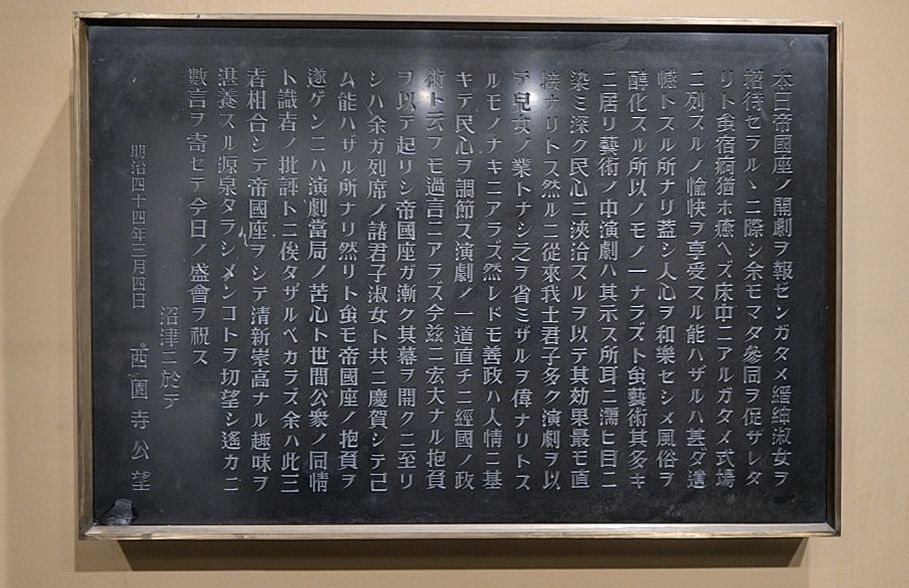 本日帝國座ノ開劇ヲ報ゼンガタメ縉紳淑女ヲ
招待セラルヽニ際シ余モマタ參同ヲ促サレタ
リト雖宿痾猶ホ癒ヘズ床中ニアルガタメ式場
ニ列スルノ愉快ヲ享受スル能ハザルハ甚ダ遺
憾トスル所ナリ蓋シ人心ヲ和樂セシメ風俗ヲ
醇化スル所以ノモノ一ナラズト雖藝術其多キ
ニ居リ藝術ノ中演劇ハ其示ス所耳ニ濡ヒ目ニ
染ミ深ク民心ニ浹洽スルヲ以テ其効果最モ直
接ナリトス然ルニ從來我士君子多ク演劇ヲ以
テ兒女ノ業トナシ之ヲ省ミザルヲ偉ナリトス
ルモノナキニアラズ然レドモ善政ハ人情ニ基
キテ民心ヲ調節ス演劇ノ一道直チニ經國ノ政
術ト云フモ過言ニアラズ今茲ニ宏大ナル抱負
ヲ以テ起リシ帝國座ガ漸ク其幕ヲ開クニ至リ
シハ余ガ列席ノ諸君子淑女ト共ニ慶賀シテ已
ム能ハザル所ナリ然リト雖モ帝國座ノ抱負ヲ
遂ゲンニハ演劇當局ノ苦心ト世間公衆ノ同情
ト識者ノ批評トニ俟タザルベカラズ余ハ此三
者相合シテ帝國座ヲシテ清新崇高ナル趣味ヲ
湛養スル源泉タラシメンコトヲ切望シ遙カニ
數言ヲ寄セテ今日ノ盛會ヲ祝ス
沼津ニ於テ
明治四十四年三月四日 西園寺公望